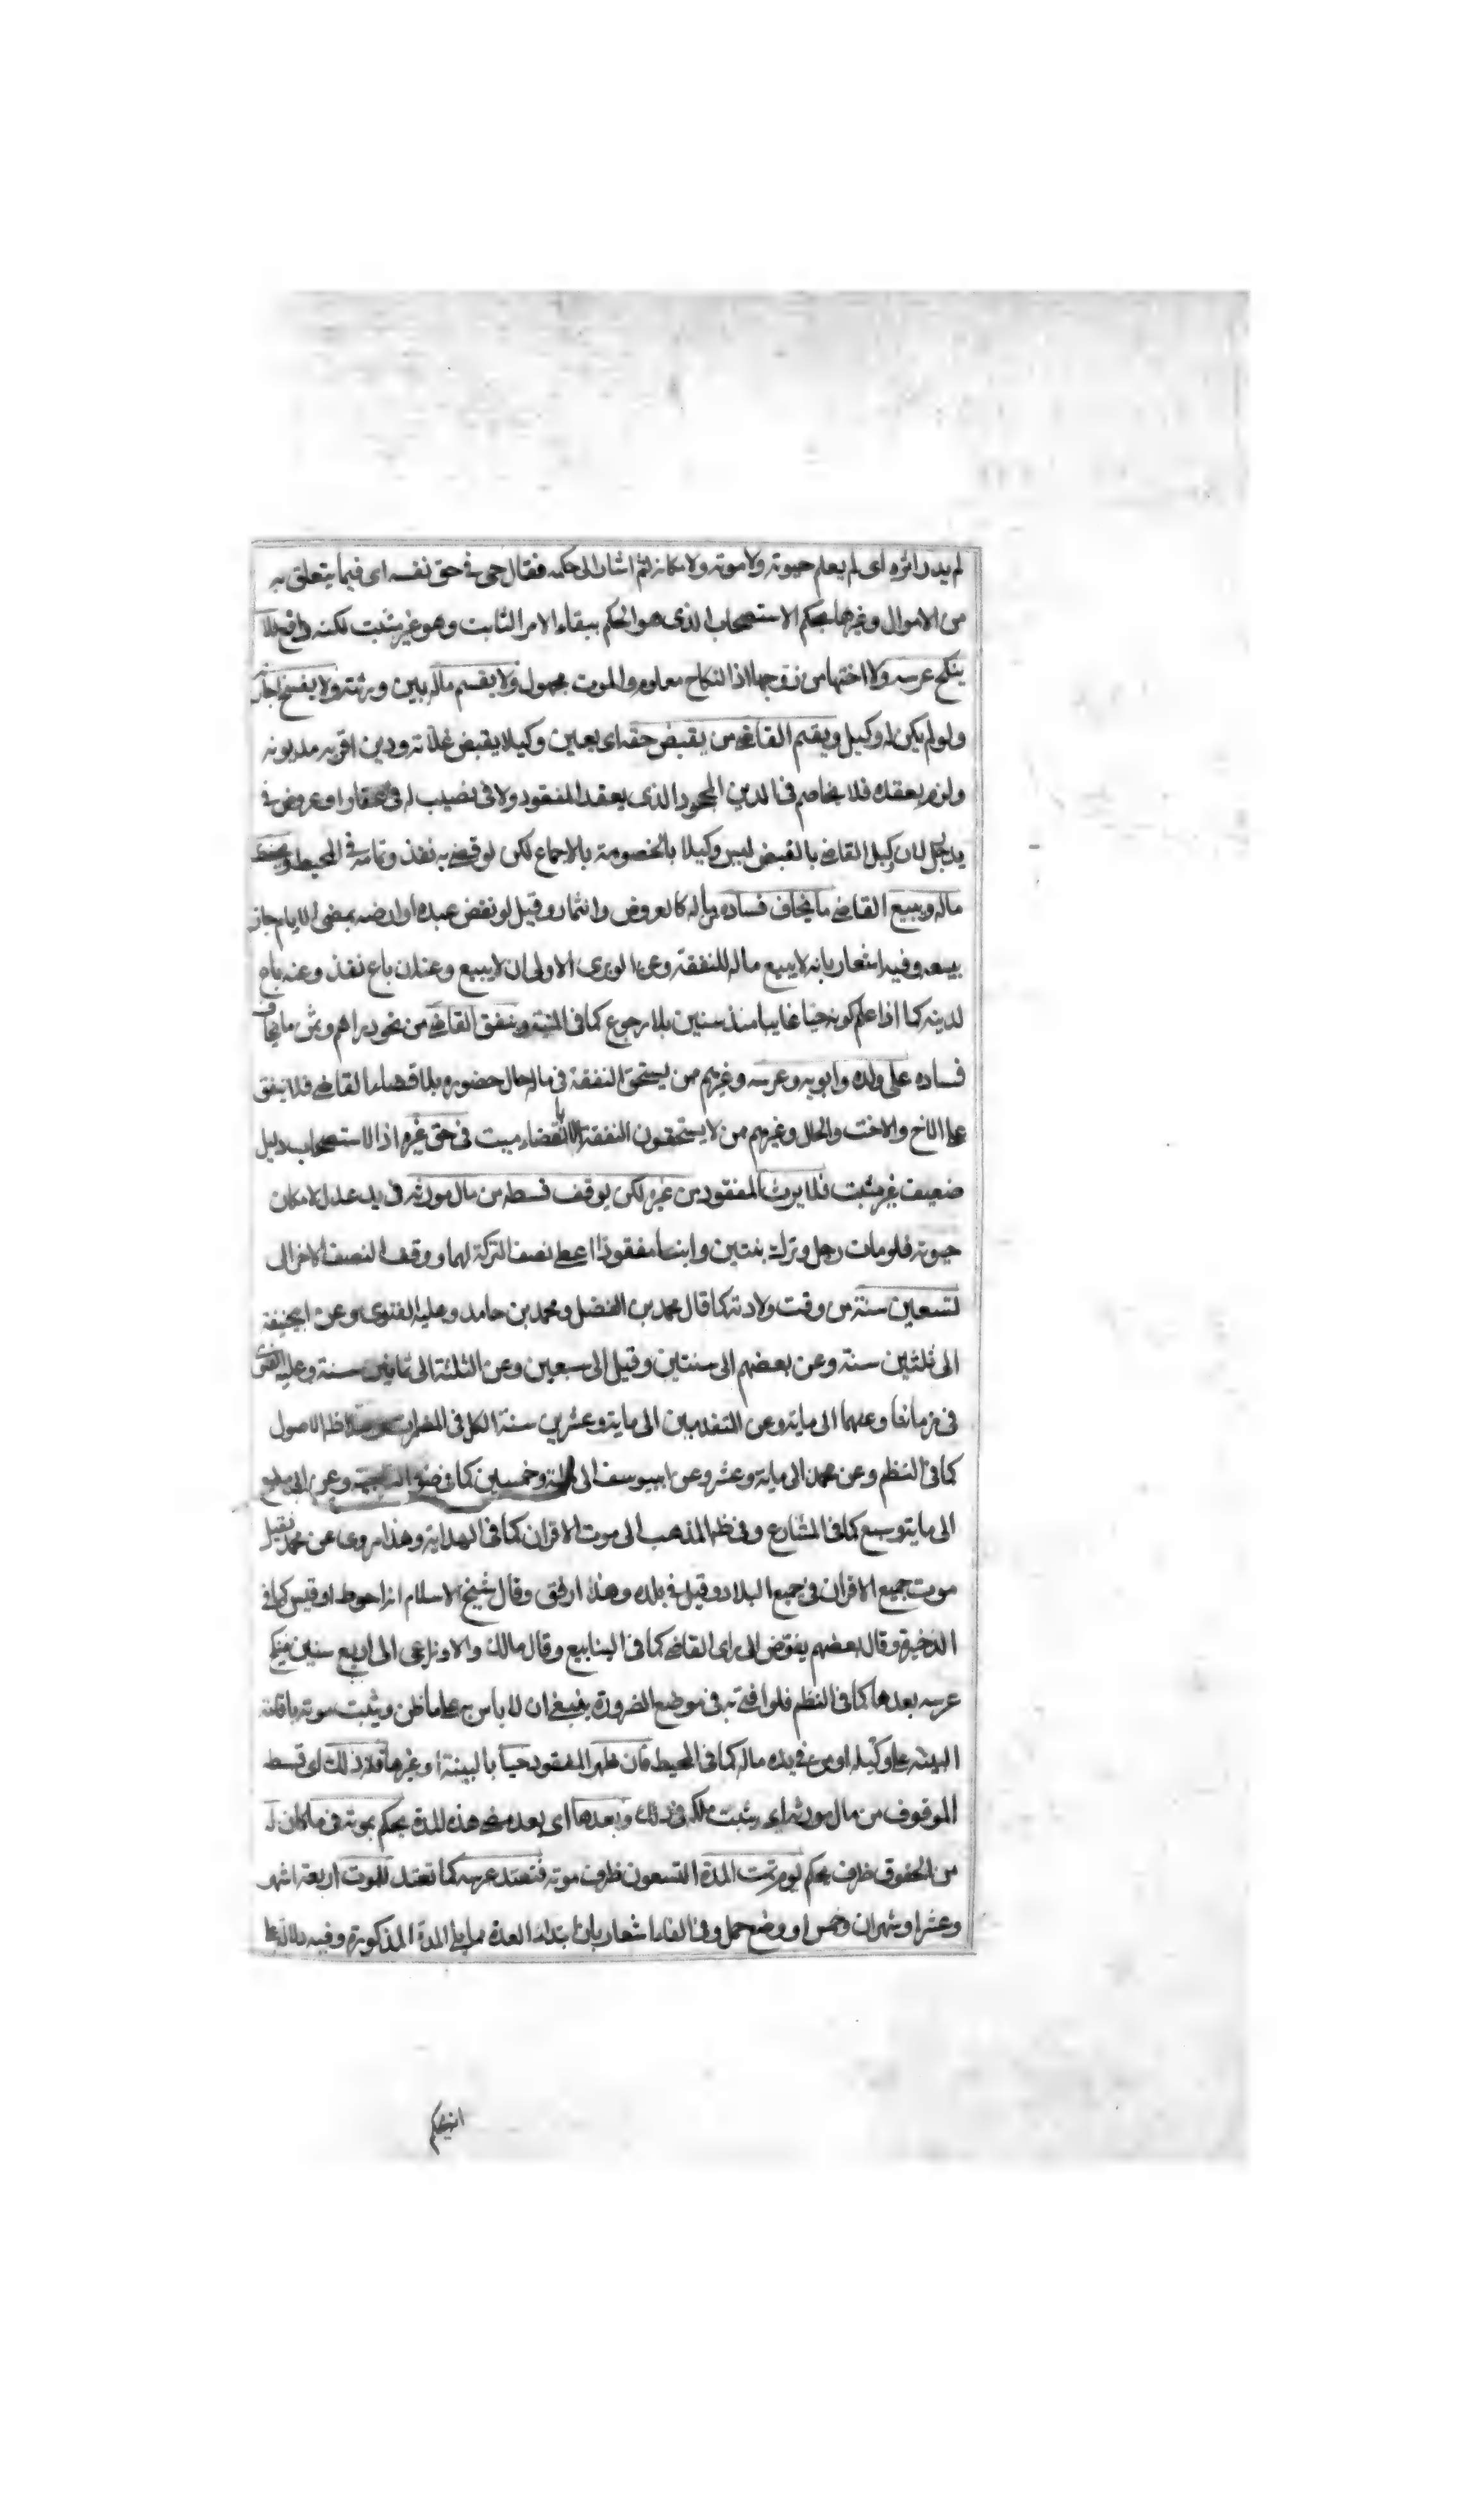 لم يدر اثره اى لم يعلم حيوته ولا موته ولا مكانه ثم اشار الى حكمه فقال حى فى حق نفسه اى فيما يتعلق به
من الاموال وغيرها بحكم الاستصحاب الذى هو الحكم ببقاء الامر الثابت وهو غير مثبت لكنه دافع فلا
ينكح عرسه ولا اختها من زوجها اذ النكاح معلوم والموت مجهول ولا يقسم ماله بين ورثته ولا يفسخ اجارته
ولو لم يكن له وكيل ويقيم القاضى من يقبض حقه اى يعين وكيلا يقبض غلاته ودين اقر به مديونه
ولزم بعقده فلا يخاصم فى الدين المجحود الذى بعقد المفقود ولا فى نصيب له فى عقار او عروض فى
يد رجل لان وكيل القاضى بالقبض ليس وكيلا بالخصومة بالاجماع لكن لو قضى به نفذ وتمامه فى المحيط ويحفظ
ماله ويبيع القاضى ما يخاف فساده من ماله كالعروض والثمار وقيل لو نقض عبده او ارضه بمضى الايام جاز
بيعه وفيه اشعار بانه لا يبيع ماله للنفقة وعن الوبرى الاولى ان لا يبيع وعند ان باع نفذ وعنه باع
لدينه كما اذا علم كونه حيا غايبا منذ سنين بلا رجوع كما فى المنية وينفق القاضى من نحو دراهم وثمن ما يخاف
فساده على ولده وابويه وعرسه وغيرهم من يستحق النفقة فى ماله حال حضوره بلا قضاء القاضى فلا ينفق
على الاخ والاخت والخال وغيرهم من لا يستحقون النفقة الا بالقضاء ميت فى حق غيره اذ الاستصحاب دليل
ضعيف غير مثبت فلا يرث المفقود من غيره لكن يوقف قسطه من مال مورثه فى يد عدل لامكان
حيوته فلو مات رجل وترك بنتين وابنا مفقودا اعطى نصف التركة لهما ووقف النصف الاخر الى
تسعين سنة من وقت ولادته كما قال محمد بن الفضل ومحمد بن حامد وعليه الفتوى وعن ابيحنيفة
الى ثلثين سنة وعن بعضهم الى سنتين وقيل الى سبعين وعن الثلثة الى ثمانين سنة وعليه الفتوى
فى زماننا وعنهما الى ماية وعن المتقدمين الى ماية وعشرين سنة الكل فى المضمرات الاصول
كما فى النظم وعن محمد الى ماية وعشر وعن ابيوسف الى وخمسين كما فى وعن
الى ماية وسبع كما فى المشارع وفى ظاهر المذهب الى موت الاقران كما فى الهداية وهذا مروى عن محمد فقيل
موت جميع الاقران فى جميع البلاد وقيل فى بلده وهذا ارفق وقال شيخ الاسلام انه احوط او قيس كما فى
الذخيرة وقال بعضهم يفوض الى راى القاضى كما فى الينابيع وقال مالك والاوزاعى الى اربع سنين فينكح
عرسه بعدها كما فى النظم فلو افتى به فى موضع الضرورة ينبغى ان لا باس به على ما اظن ويثبت موته باقامة
البينة على وكيله او من فى يده ماله كما فى المحيط فان ظهر المفقود حيا بالبينة او غيرها فله ذلك اى قسطه
الموقوف من مال مورثه اى يثبت ملكه فى ذلك وبعدها اى بعد مضى هذه المدة يحكم بموته فى ما كان له
من الحقوق ظرف يحكم يوم تمت المدة التسعون ظرف موته فتعتد عرسه كما تعتد للموت اربعة اشهر
وعشرا وشهران وخمس او وضع حمل وفى الفاء اشعار بان ابتداء العدة المدة المذكورة وفيه دلالة على